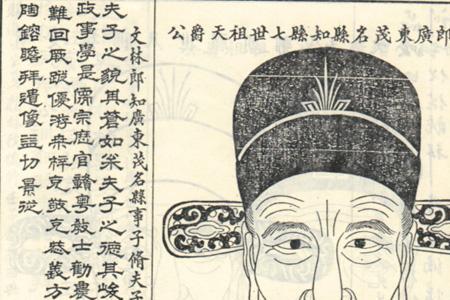 郎廣東茂名縣知縣七世祖天爵公
文林郎知廣東茂名縣事子脩夫子
夫子之貌其蒼如枀夫子之德其峻
政事學是儒宗庭官贛粵敎士勸農
難回厥蹤優游桒梓克敬克慈義方
陶鎔瞻拜遺像益切景從